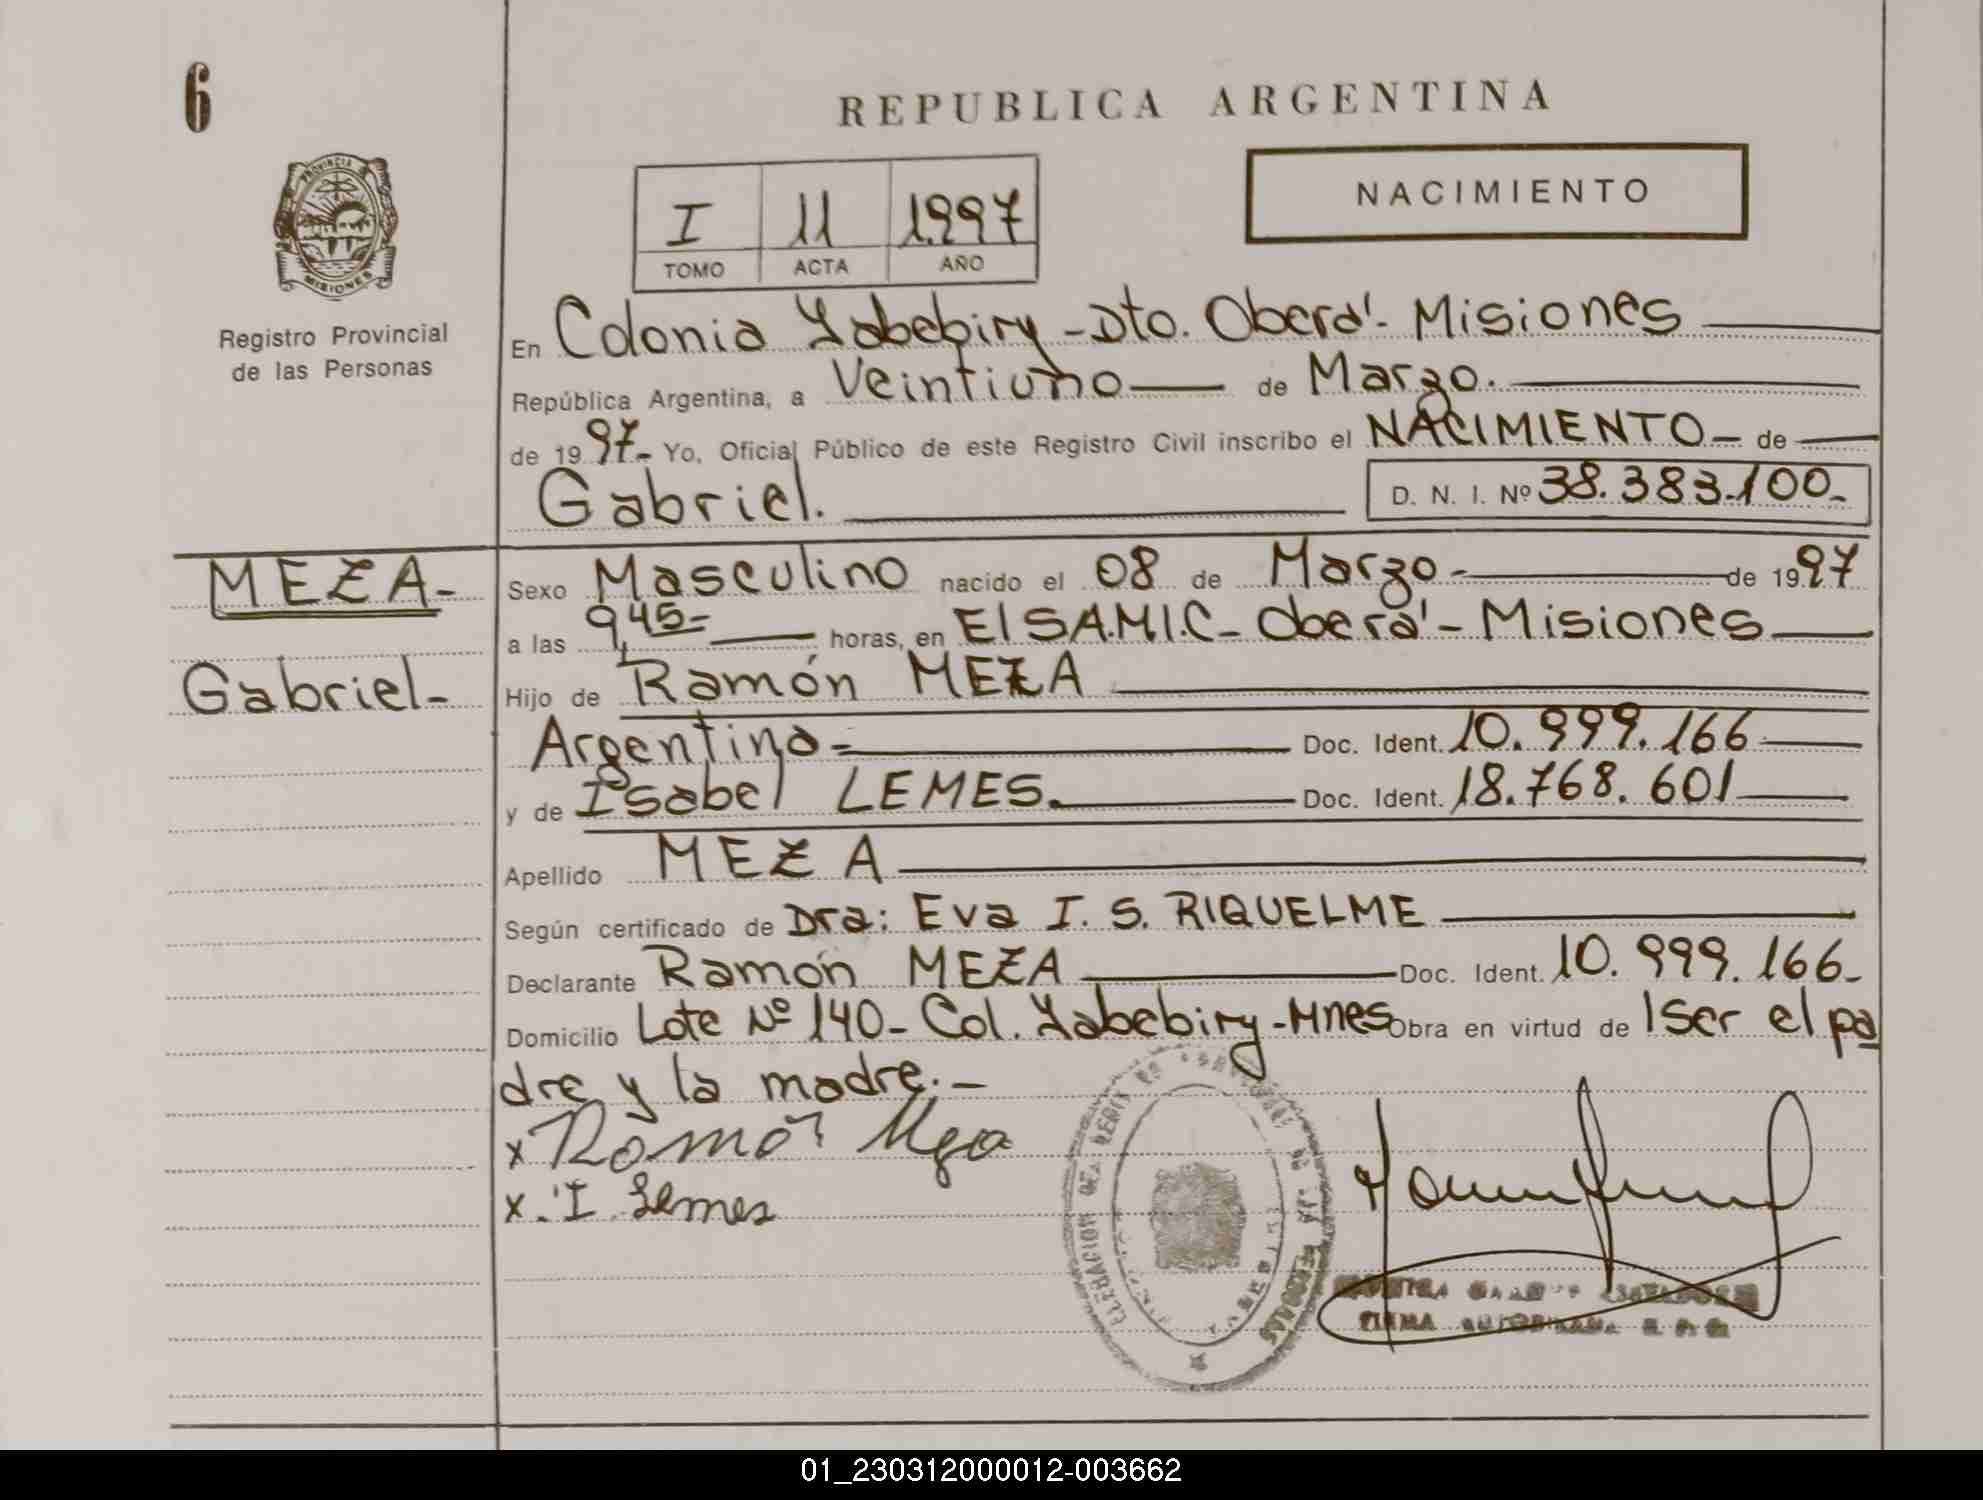 6
REPUBLICA ARGENTINA
NACIMIENTO
I 11 1997
TOMO ACTA AÑO
PROVINCIA
MISIONES
Registro Provincial
de las Personas
En Colonia Yabebiry - Dto. Oberá - Misiones
República Argentina, a Veintiuno de Marzo.
de 1997- Yo, Oficial Público de este Registro Civil inscribo el NACIMIENTO - de
Gabriel.
D. N. I. Nº 38.383.100-
MEZA-
Gabriel-
Sexo Masculino nacido el 08 de Marzo- de 1997
a las 9,45- horas, en El SAMIC - Oberá - Misiones
Hijo de Ramón MEZA
Argentino- Doc. Ident. 10.999.166
y de Isabel LEMES. Doc. Ident. 18.768.601
Apellido MEZA
Según certificado de Dra: Eva I. S. RIQUELME
Declarante Ramón MEZA Doc. Ident. 10.999.166-
Domicilio Lote Nº 140- Col. Yabebiry - Mnes Obra en virtud de Ser el pa
dre y la madre.-
x Ramón Meza
x I Lemes
FIRMA AUTORIZADA
01_230312000012-003662